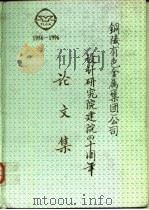 1956-1996
銅陵有色金属集团公司
設计研究院建院四十周年
论文集